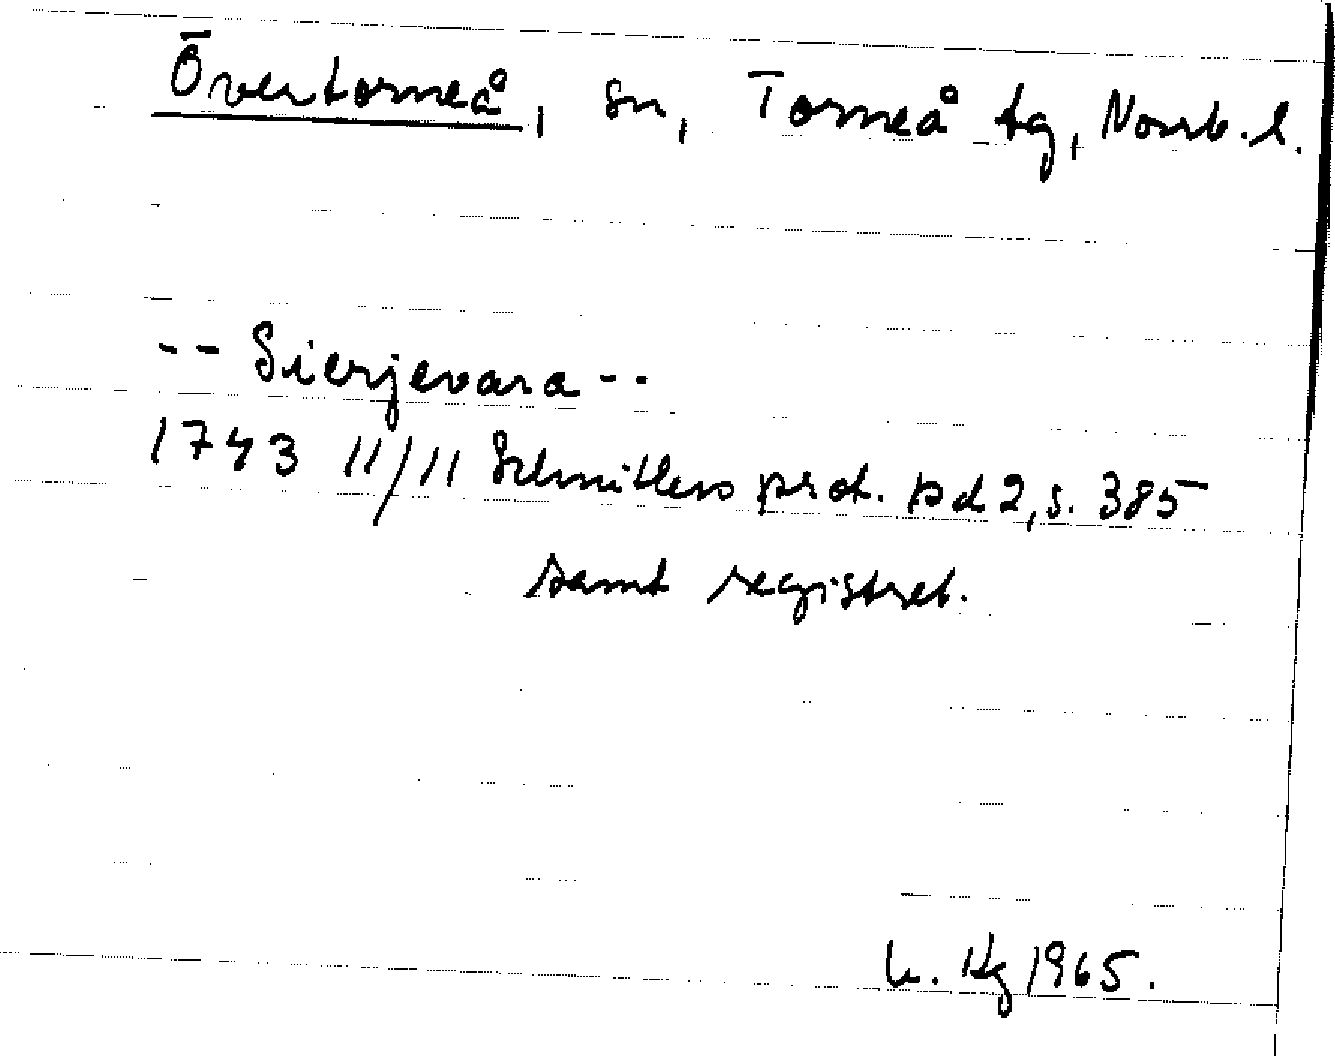 Övertorneå, sn, Torneå tg, Norrb. l.
-- Sierjevara --
1743 11/11 Schnitlers prot. bd 2, s. 385
samt registret.
Hg 1965.